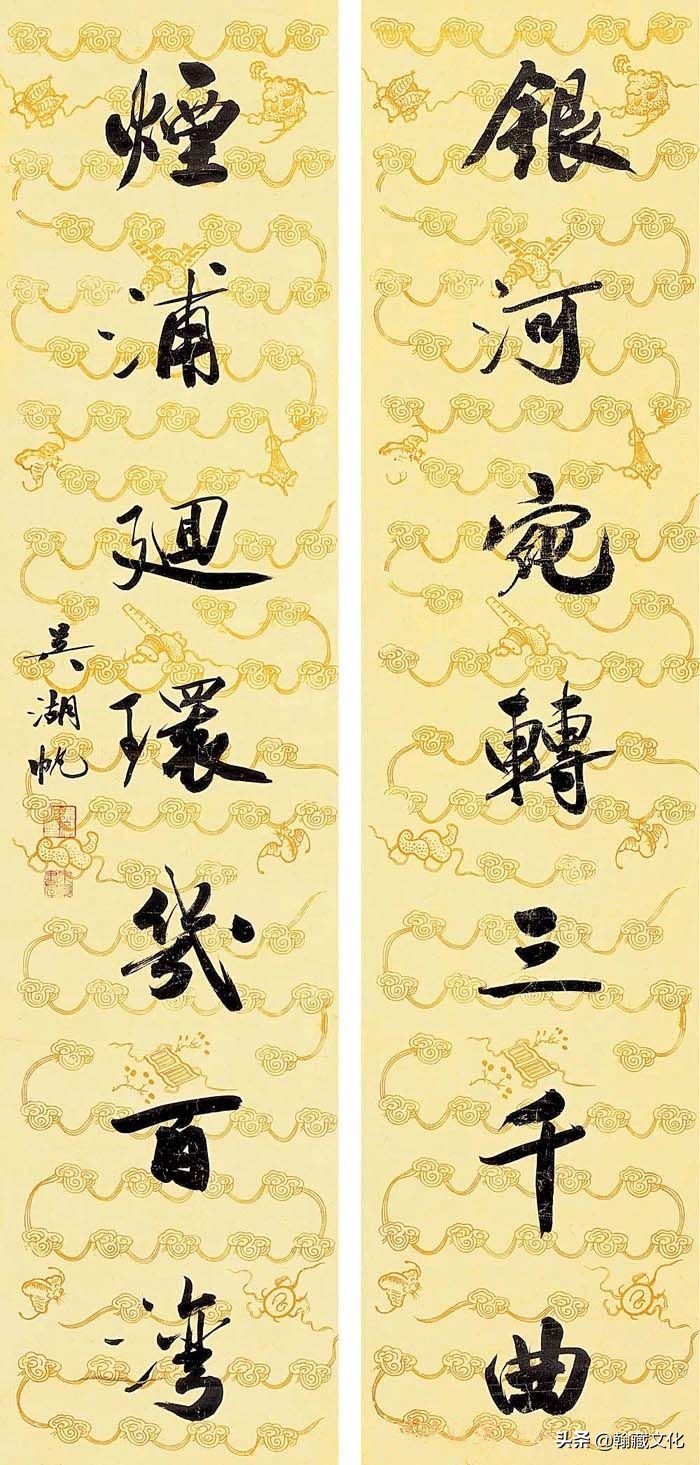 銀河宛轉三千曲
煙浦廻環幾百灣
吳湖帆
头条 @翰藏文化